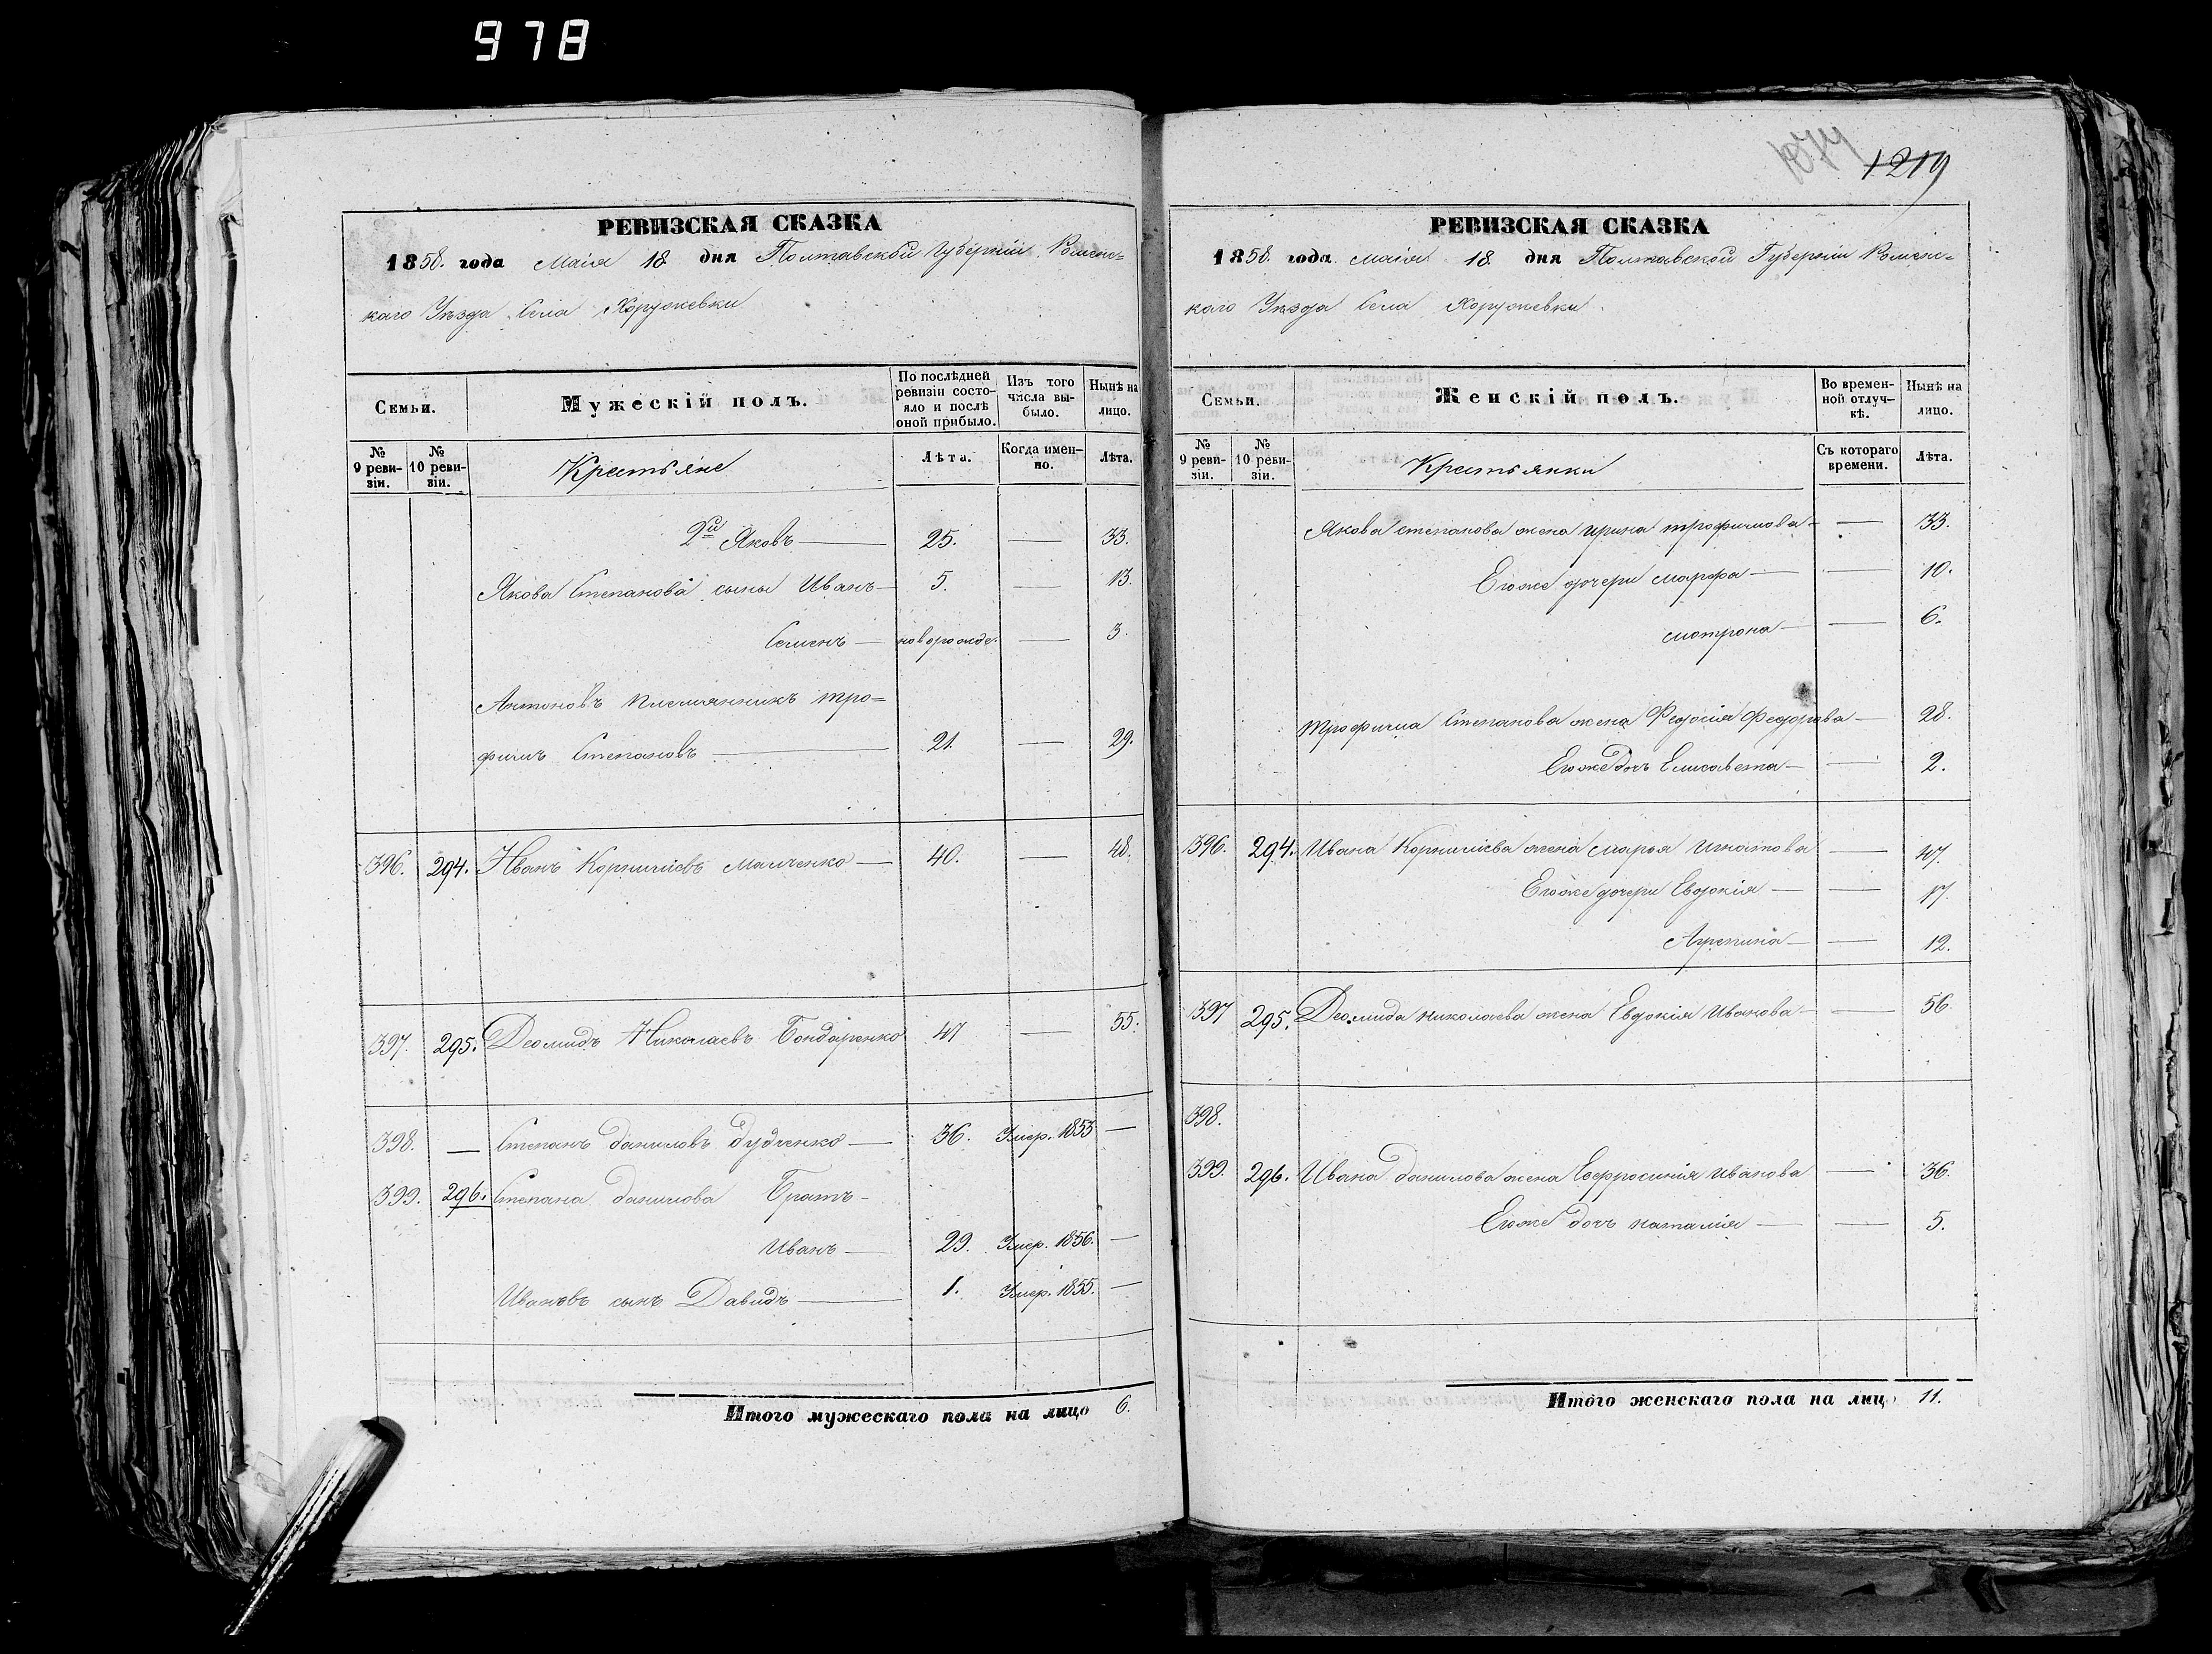 978
РЕВИЗСКАЯ СКАЗКА
1858. года Маія 18. дня Полтавской Губерніи Роменс=
каго Уѣзда Села Хоружевки
Семьи.
Мужескій полъ.
По послѣдней ревизіи состояло и послѣ оной прибыло.
Изъ того числа выбыло.
Нынѣ на лицо.
№ 9 ревизіи.
№ 10 ревизіи.
Крестьяне
Лѣта.
Когда именно.
Лѣта.
2й Яковъ — 25. — 33.
Якова Степанова сыны Иванъ — 5. — 13.
Семенъ — новорожде. — 3.
Антоновъ племянникъ Тро=
фимъ Степановъ — 21 — 29.
396. 294. Иванъ Корниліевъ Малченко — 40. — 48.
397. 295. Деомидъ Николаевъ Бондаренко 47 — 55.
398. — Степанъ Даниловъ Дудченко — 36. Умер. 1853 —
399. 296. Степана Данилова Братъ —
Иванъ — 29. Умер. 1856. —
Ивановъ сынъ Давидъ — 1. Умер. 1855. —
Итого мужескаго пола на лицо 6.
1074
1219
РЕВИЗСКАЯ СКАЗКА
1858. года Маія 18. дня Полтавской Губерніи Роменс=
каго Уѣзда Села Хоружевки
Семьи.
Женскій полъ.
Во временной отлучкѣ.
Нынѣ на лицо.
№ 9 ревизіи.
№ 10 ревизіи.
Крестьянки
Съ котораго времени.
Лѣта.
Якова Степанова жена Ирина Трофимова — — 33.
Егоже дочери Марфа — — 10.
Мотрона — — 6.
Трофима Степанова жена Федосія Федорова — 28.
Егоже дочь Елисавета — — 2.
396. 294. Ивана Корниліева жена Марья Игнатова — 47.
Егоже дочери Евдокія — — 17.
Агрепина — — 12.
397 295. Деомида Николаева жена Евдокія Иванова — — 56.
398.
399. 296. Ивана Данилова жена Евфросинія Иванова — 36.
Егоже дочь Наталія — — 5.
Итого женскаго пола на лицо 11.